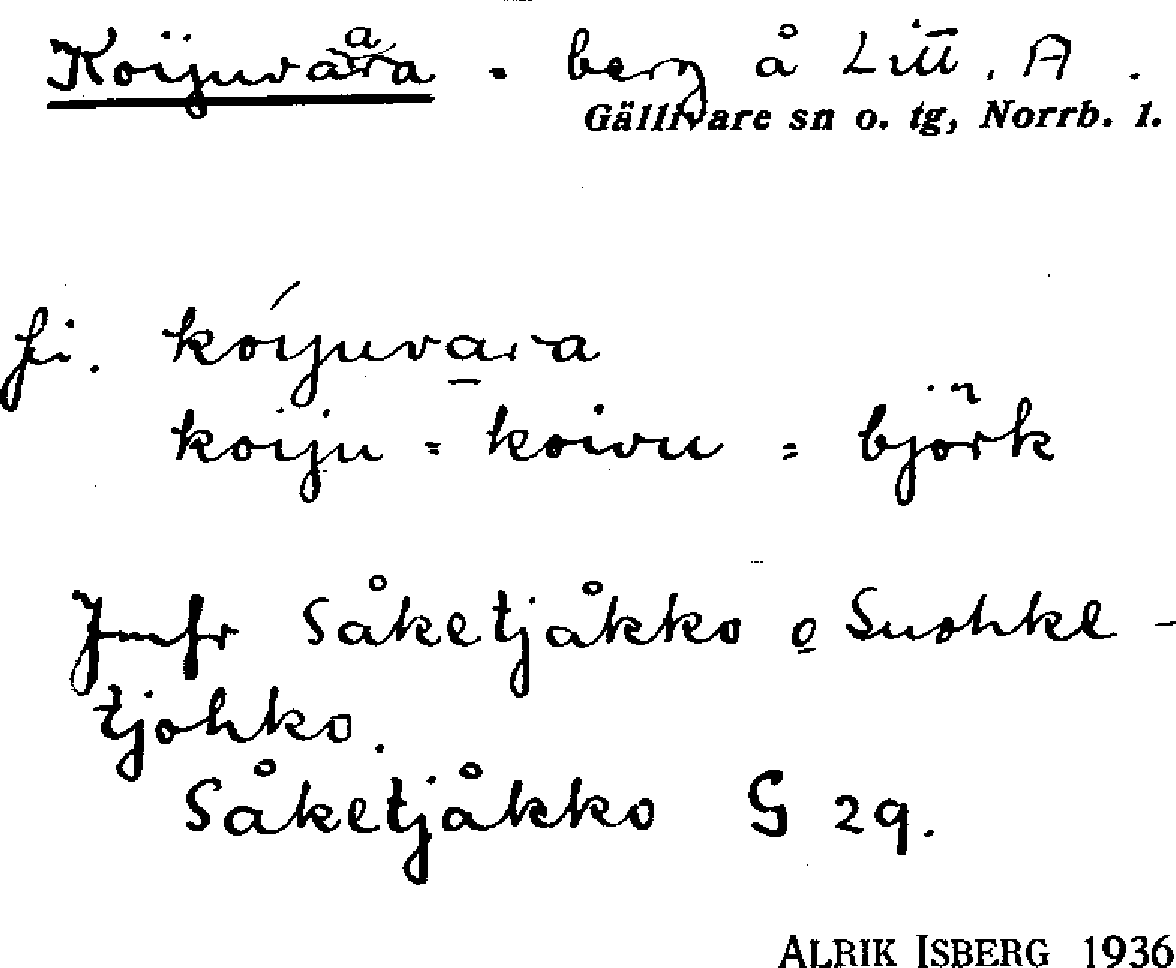 Koijuvaara - berg å Litt. A.
Gällivare sn o. tg, Norrb. l.
fi. kóijuvara
koiju = koivu = björk
Jmfr Såketjåkko o Suohke-
tjohko.
Såketjåkko G 29.
ALRIK ISBERG 1936